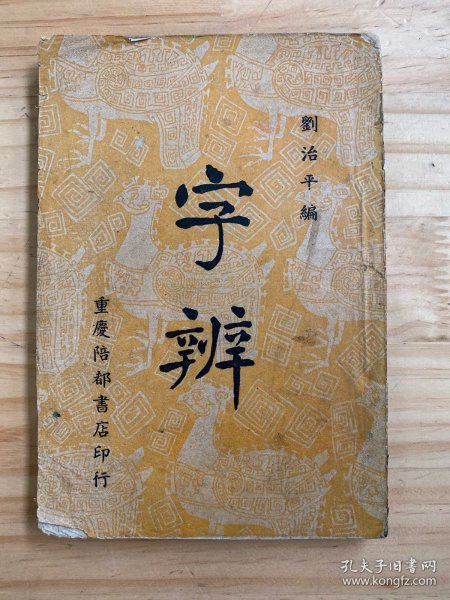 劉治平編
字辨
重慶陪都書店印行
孔夫子旧书网
www.kongfz.com